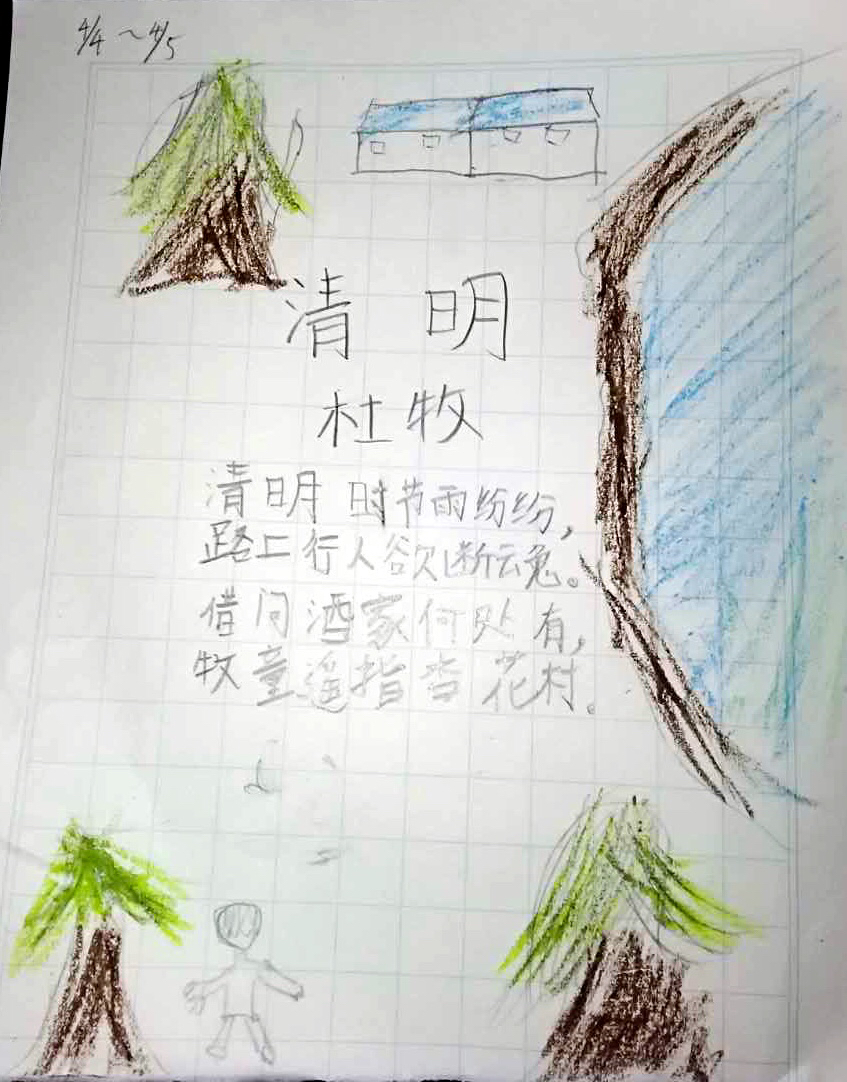 4/4～4/5
清明
杜牧
清明时节雨纷纷，
路上行人欲断云兔。
借问酒家何处有，
牧童遥指杏花村。